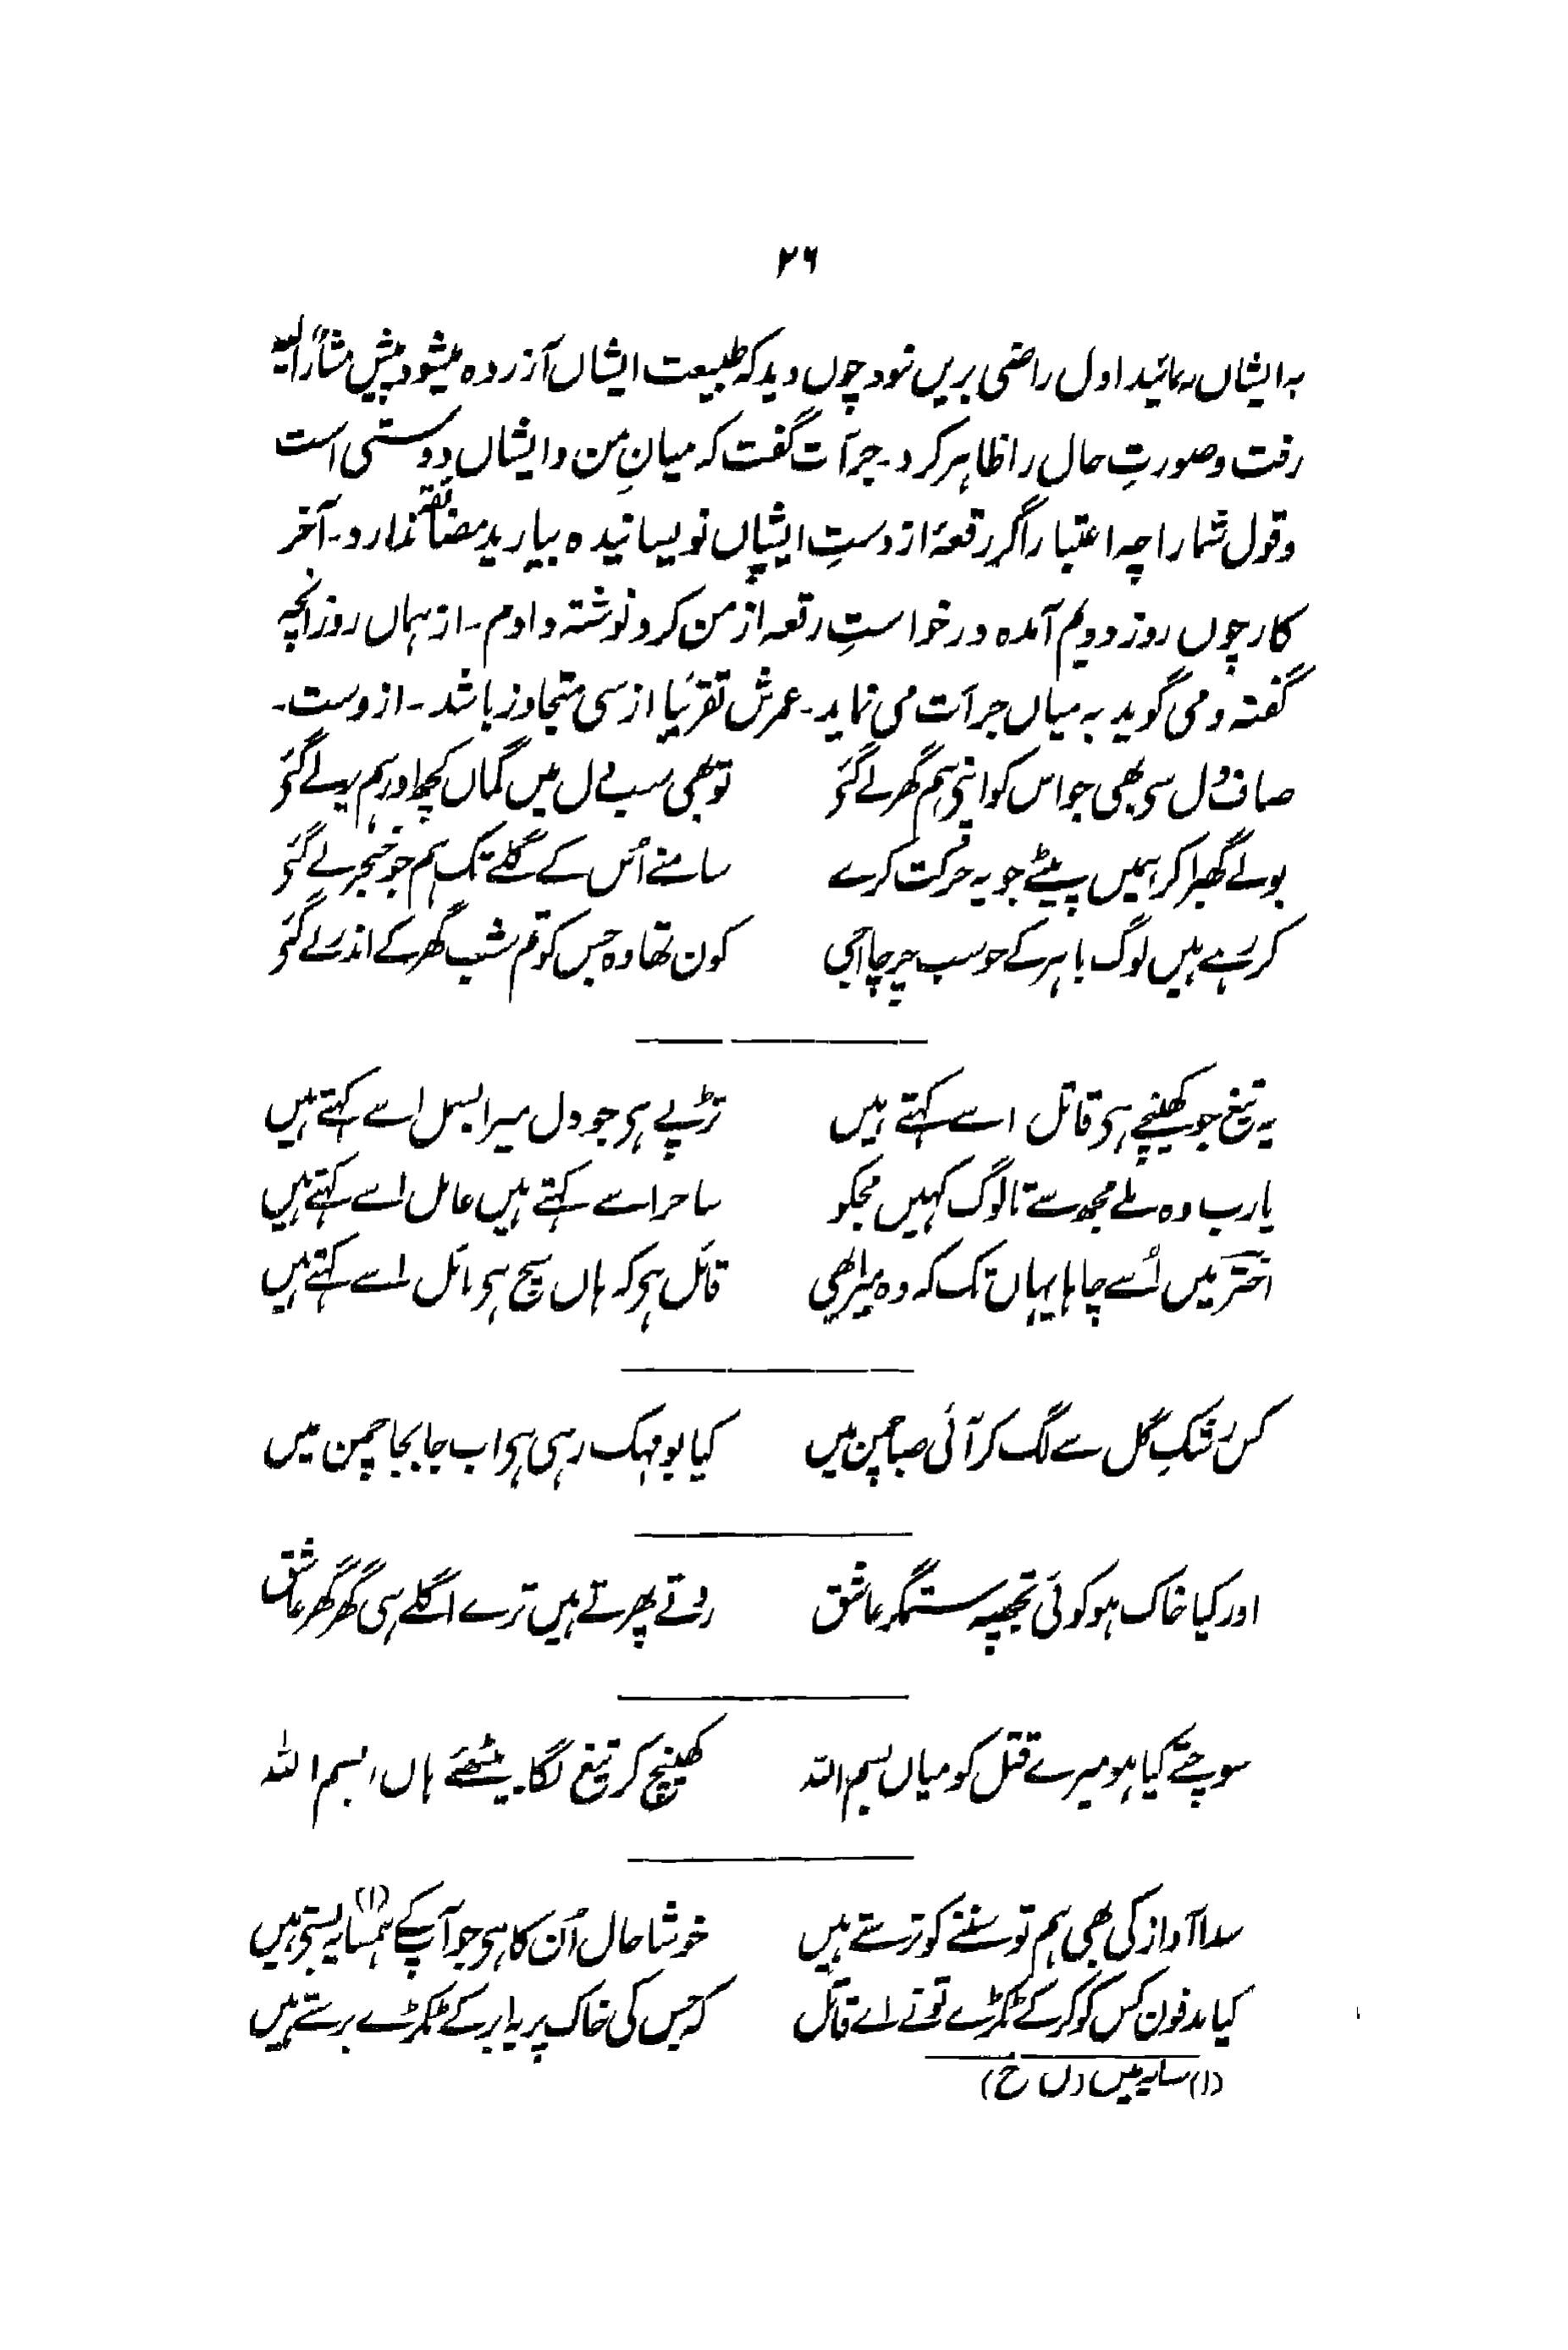 ۲۶
بہ ایشاں نمائید اول راضی بریں نبود چوں دید کہ طبیعت ایشاں آزردہ میشود پیش مشارٌالیہ
رفت و صورتِ حال را ظاہر کرد۔ جرأت گفت کہ میانِ من و ایشاں دوستی است
و قول شمارا چہ اعتبار اگر رقعۂ از دستِ ایشاں نویسانیدہ بیارید مضائقہ ندارد۔ آخر
کار چوں روز دویم آمدہ درخواستِ رقعہ از من کرد نوشتہ دادم۔ از ہماں روز انچہ
گفتہ و می گوید بہ میاں جرأت می نماید۔ عمرش تقریباً از سی متجاوز باشد۔ از وست۔
صاف دل سی بھی جو اس کو اپنی ہم گھر لے گئی توبھی سب کے دل میں گماں کچھ اور ہم پر لے گئی
بولے گھبرا کر ہمیں پیٹے جو یہ حرکت کرے سامنے اُس کے گلے تک ہم جو خنجر لے گئی
کر رہے ہیں لوگ باہر کے جو سب چرچا اجی کون تھا وہ جس کو تم شب گھر کے اندر لے گئی
یہ تیغ جو کھینچے ہی قاتل اسے کہتے ہیں تڑپے ہی جو دل میرا بسمل اسے کہتے ہیں
یارب وہ ملے مجھ سے تا لوگ کہیں مجکو ساحر اسے کہتے ہیں عامل اسے کہتے ہیں
اختر میں اُسے چاہا یہاں تک کہ وہ میرا بھی قائل ہی کہ ہاں سچ ہی مائل اسے کہتے ہیں
کس رشکِ گل سے لگ کر آئی صبا چمن میں کیا بو مہک رہی ہی اب جا بجا چمن میں
اور کیا خاک ہو کوئی تجھپہ ستمگر عاشق روتے پھرتے ہیں ترے اگلے ہی گھر گھر عاشق
سوچتے کیا ہو میرے قتل کو میاں بسم اللہ کھینچ کر تیغ لگا بیٹھئے ہاں، بسم اللہ
سدا آواز کی بھی ہم تو سننے کو ترستے ہیں خوشا حال اُن کا ہی جو آپ کے ہمسایہ(۱) بستی ہیں
کیا مدفون کس کو کر کے ٹکڑے تو نے اے قاتل کہ جس کی خاک پر یا ابر کے ٹکڑے برستے ہیں
(۱) سایہ میں (ن خ)